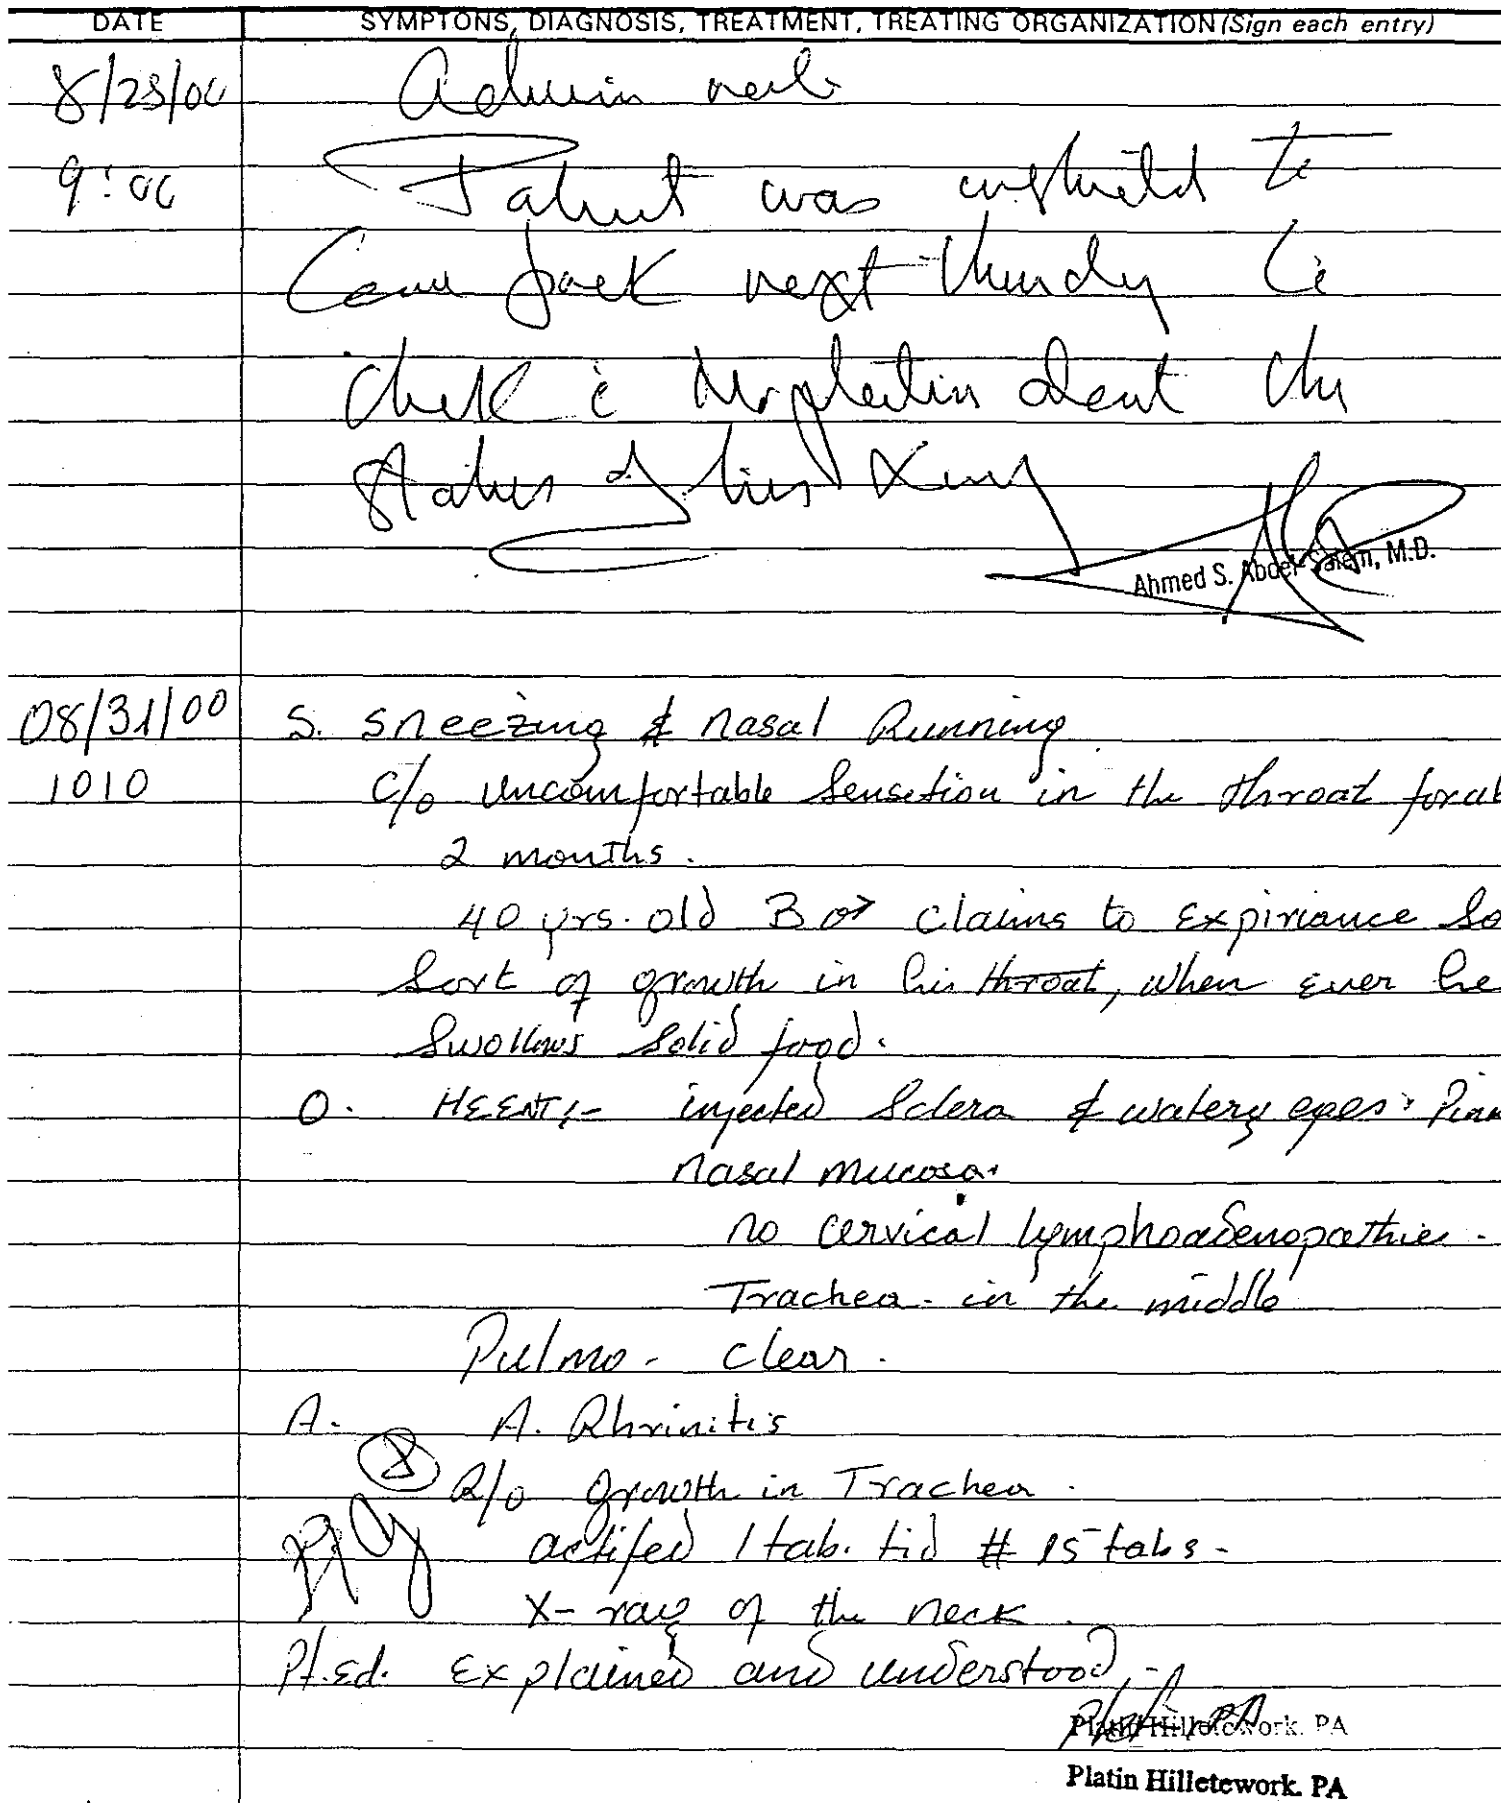 DATE SYMPTONS, DIAGNOSIS, TREATMENT, TREATING ORGANIZATION (Sign each entry)
8/28/00 Admin note
9:00 Patient was to
Come back next
Check c̄ Mr platin about the
status of his Xray
Ahmed S. Abdel-Salem, M.D.
08/31/00 S. sneezing & nasal Running
1010 c/o uncomfortable Sensetion in the throat for ab
2 months.
40 yrs. old B ♂ claims to expiriance So
Sort of growth in his throat, when ever he
Swollows Solid food.
O. HEENT:- injected Sclera & watery eyes, Pink
nasal mucosa.
no cervical lymphoadenopathie.
Trachea - in the middle
Pulmo - clear.
A. A. Rhrinitis
R/o growth in Trachea.
actifed 1 tab. tid # 15 tabs-
X-ray of the neck.
Pt. Ed. Explained and understood,-
Platin Hilletework. PA
Platin Hilletework. PA